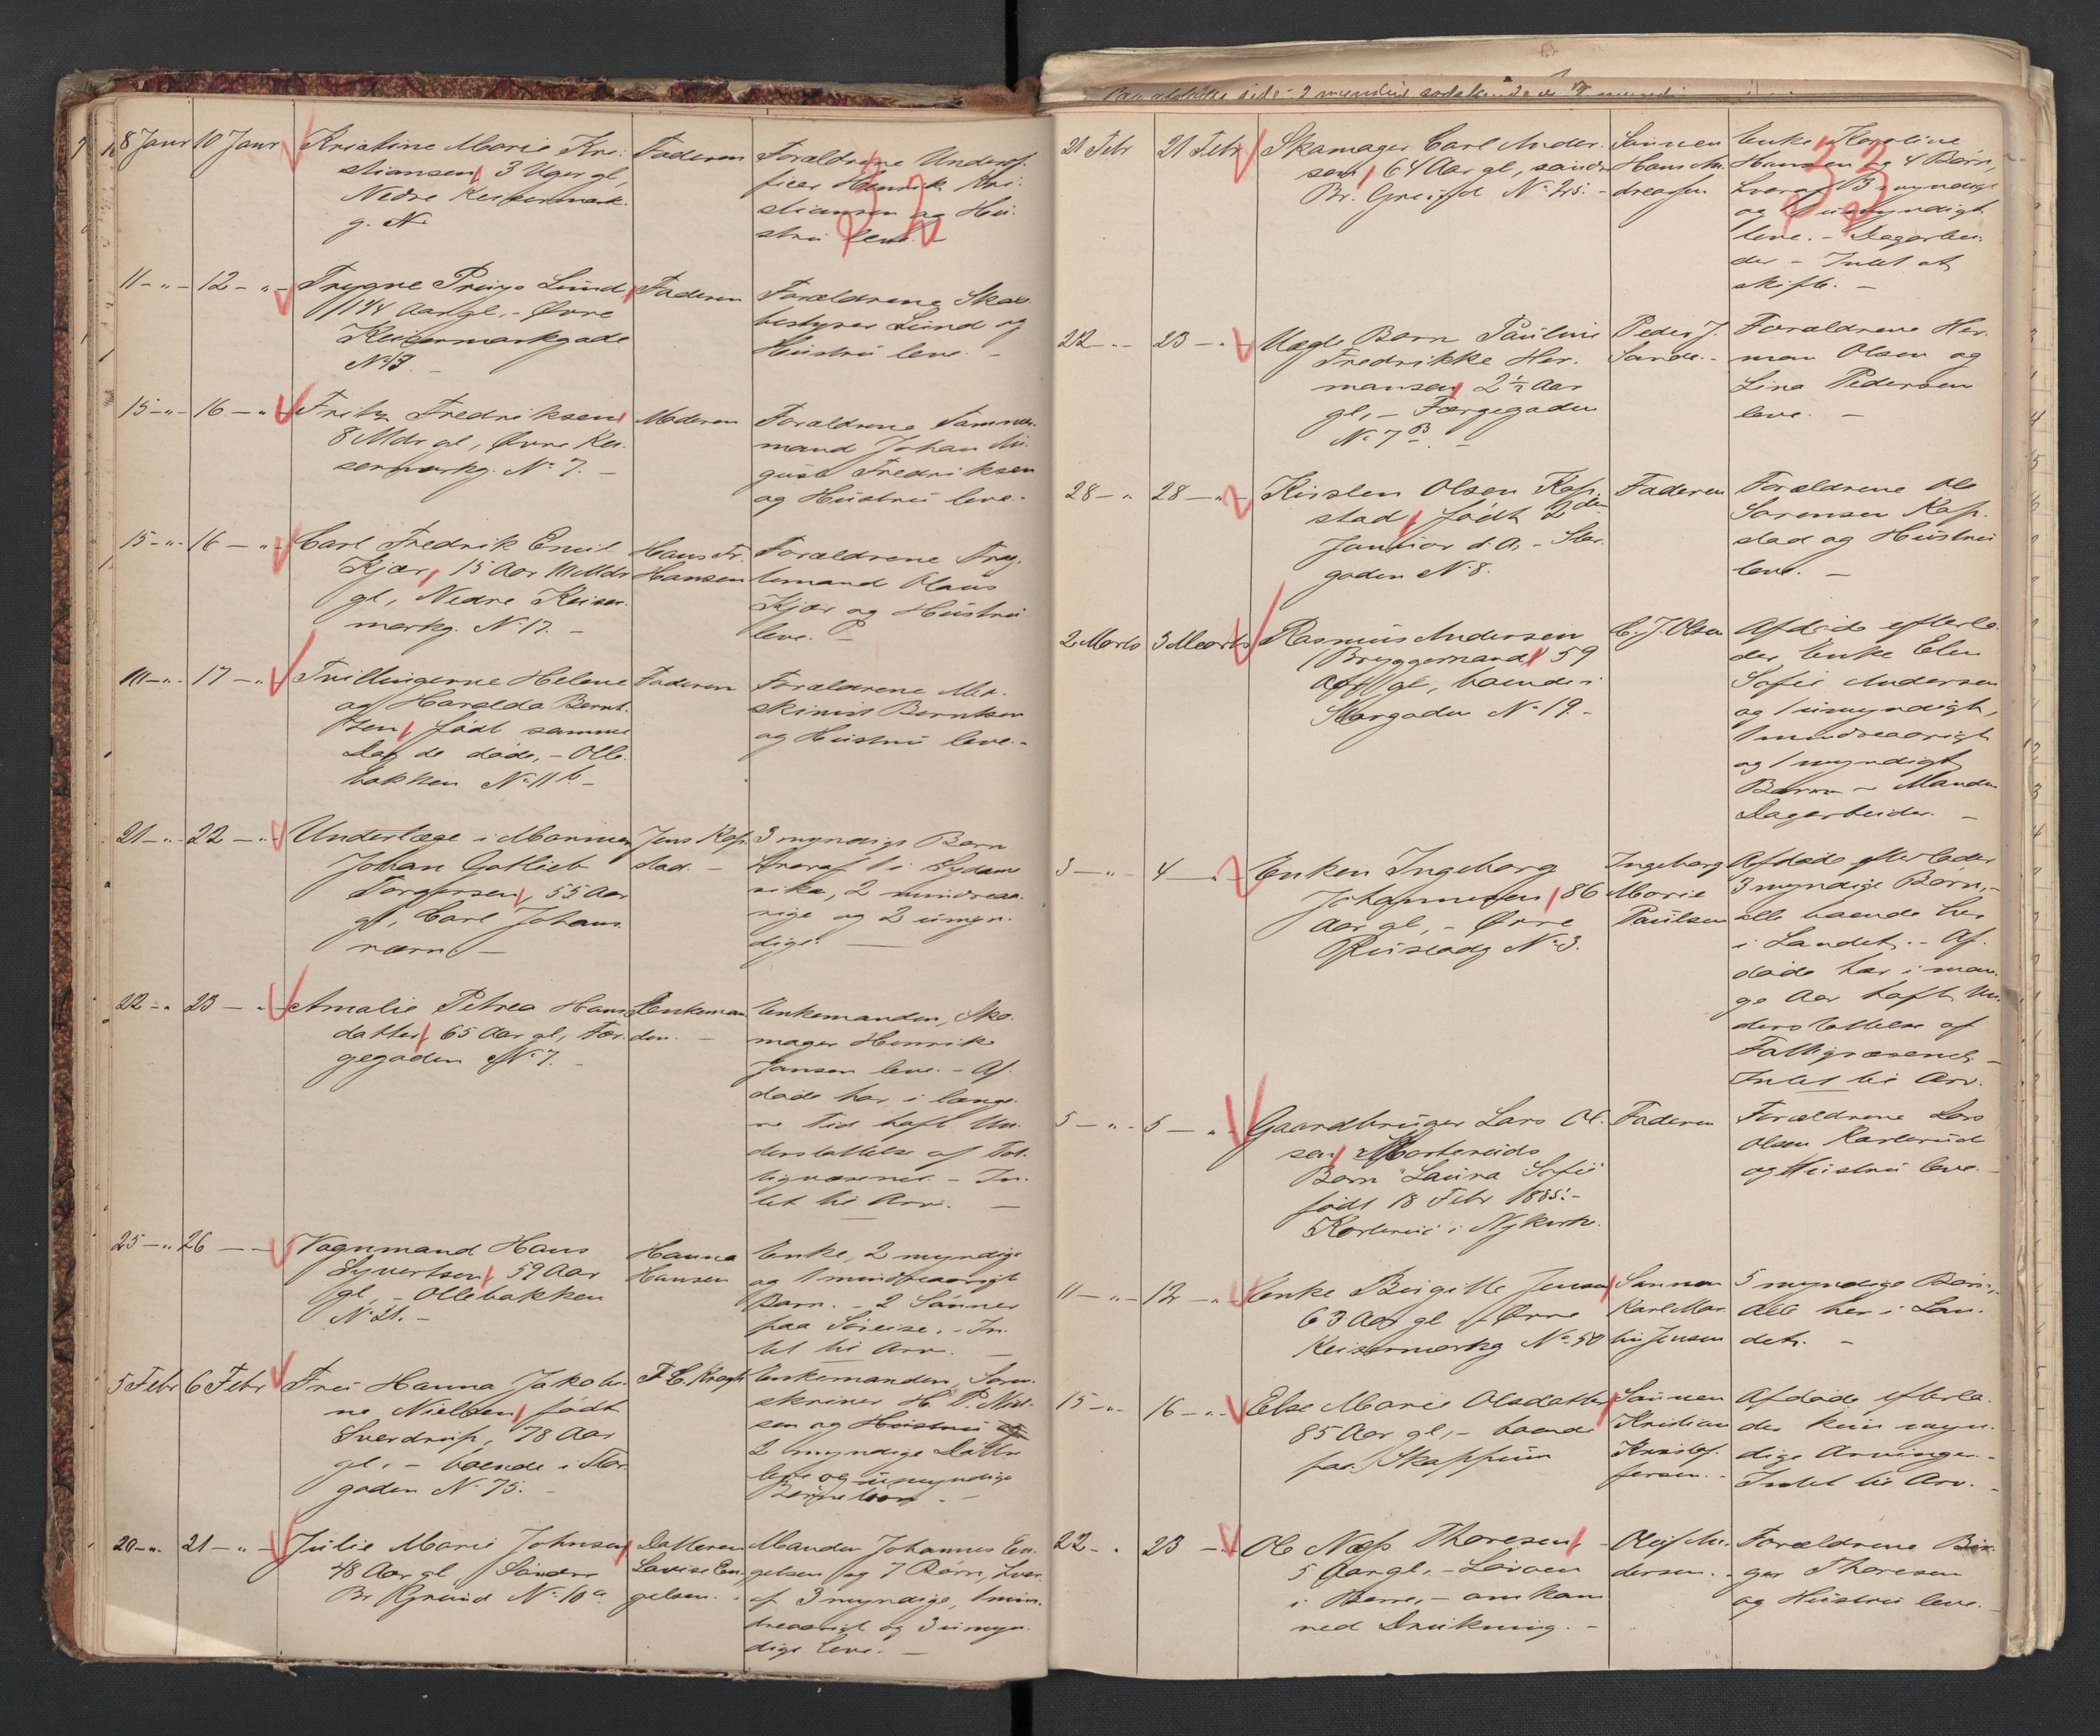 8 Janr 10 Janr Kristine Marie Kri-
stiansen, 3 Uger gl,
Nedre Keisermark-
g. N
Faderen
Forældrene Underof-
ficer Henrik Kri-
stiansen og Hu-
stru leve. -
11 - " - 12 - " - Trygve Lund
1 1/4 Aar gl. - Øvre
Keisermarkgade
No 17. -
Faderen
Forældrene Skol-
bestyrer Lund og
Hustru leve. -
15 - " - 16 - " - Fritz Fredriksen
8 Mdr gl, Øvre Kei-
sermarkg. No 7. -
Moderen
Forældrene Tømmer-
mand Johan Au-
gust Fredriksen
og Hustru leve. -
15 - " - 16 - " - Carl Fredrik Emil
Kjær, 15 Aar 10 Mdr
gl, Nedre Keiser-
markg. No 17. -
Hans Fr.
Hansen
Forældrene
Olaus
Kjær og Hustru
leve. -
17 - " - Tvillingerne Helene
og Haralda Bernt-
sen, født samme
Dag de døde, - Olle-
bakken No 11 b. -
Faderen
Forældrene Ma-
skinist Berntsen
og Hustru leve. -
21 - " - 22 - " - Underlæge i Marinen
Johan Gotlieb
Torgersen, 55 Aar
gl, Carl Johans
værn -
Jens Rap-
stad. -
3 myndige Børn
hvoraf 1 i Sydame-
rika, 2 mindreaa-
rige og 2 umyn-
dige. -
22 - " 23 - " - Amalie Petrea Hans-
datter, 65 Aar gl, Fær-
gegaden No 7. -
Enkeman-
den. -
Enkemanden, Sko-
mager Henrik
Jansen leve. - Af-
døde har i længe-
re Tid haft Un-
derstøttelse af Fat-
tigvæsenet. - In-
tet til Arv. -
25 - " 26 - - Vognmand Hans
Syvertsen, 59 Aar
gl, - Ollebakken
No 21. -
Hanna
Hansen
Enke, 2 myndige
og 1 mindreaarigt
Barn. - 2 Sønner
paa Søreise. - In-
tet til Arv. -
5 Febr 6 Febr Fru Hanna Jakobi-
ne Nielsen, født
Sverdrup, 78 Aar
gl. - boende i Stor-
gaden No 75. -
F. C. Kragh
Enkemanden, Soren-
skriver H. P. Niel-
sen og Hustru
2 myndige Døttre
leve og umyndige
Børnebørn. -
20 - " - 21 - " - Julie Marie Johnsen
48 Aar gl, Søndre
Br Grund No 10 a
Datteren
Lovise En-
gelsen. -
Manden Johannes En-
gelsen og 7 Børn, hvor-
af 3 myndige, 1 min-
dreaarigt og 3 umyn-
dige leve. -
21 Febr 21 Febr Skomager Carl Ander-
sen, 64 Aar gl, søndr
Br. Grund No 25. -
Sønnen
Hans An-
dreasen
Enke Karoline
Hansen og 4 Børn,
hvoraf 3 myndige
og 1 umyndigt
leve. - Dagarbei-
der - Intet at
skifte. -
22 - " - 23 - " - Uægte Barn Pauline
Fredrikke Her-
mansen, 2 1/2 Aar
gl, - Færgegaden
No 7 B. -
Peder J.
Sande. -
Forældrene Her-
man Olsen og
Lina Pedersen
leve. -
28 - " 28 - " - Kirsten Olsen Rap-
stad, født 2den
Januar d. A. - Stor-
gaden No 8.
Faderen
Forældrene Ole
Sørensen Rap-
stad og Hustru
leve. -
2 Marts 3 Marts Rasmus Andersen
(Bryggemand) 59
Aar gl, boende i
Storgaden No 19. -
C. J. Olsen
Afdøde efterla-
der Enke Elen
Sofie Andersen
og 1 umyndigt,
1 mindreaarigt
og 1 myndigt
Børn - Manden
Dagarbeider. -
3 - " - 4 - " - Enken Ingeborg
Johannesen, 86
Aar gl, - Øvre
No 3.
Ingeborg
Marie
Paulsen
Afdøde efterlader
3 myndige Børn, -
alle boende her
i Landet. - Af-
døde har i man-
ge Aar haft Un-
derstøttelse af
Fattigvæsenet -
Intet til Arv.
5 - " - 5 - " - Gaardbruger Lars Ol-
sen
Barn "Laura Sofie"
født 18 Febr 1885. -
i Nykirke.
Faderen
Forældrene Lars
Olsen
og Hustru leve. -
11 - " - 12 - " - Enke Birgitte Jensen
63 Aar gl, Øvre
Keisermarkg No 50
Sønnen
Karl Mar-
tin Jensen
5 myndige Børn,
alle her i Lan-
det. -
15 - " - 16 - " - Else Marie Olsdatter
85 Aar gl, - boende
paa Skoppum
Sønnen
Kristian
Kristof-
fersen. -
Afdøde efterla-
der kun myn-
dige Arvinger. -
Intet til Arv. -
22 - " 23 - Ole Næss Thoresen, -
5 Aar gl. -
i Borre, - omkom
ved Drukning. -
Oluf An-
dersen. -
Forældrene
Thoresen
og Hustru leve. -